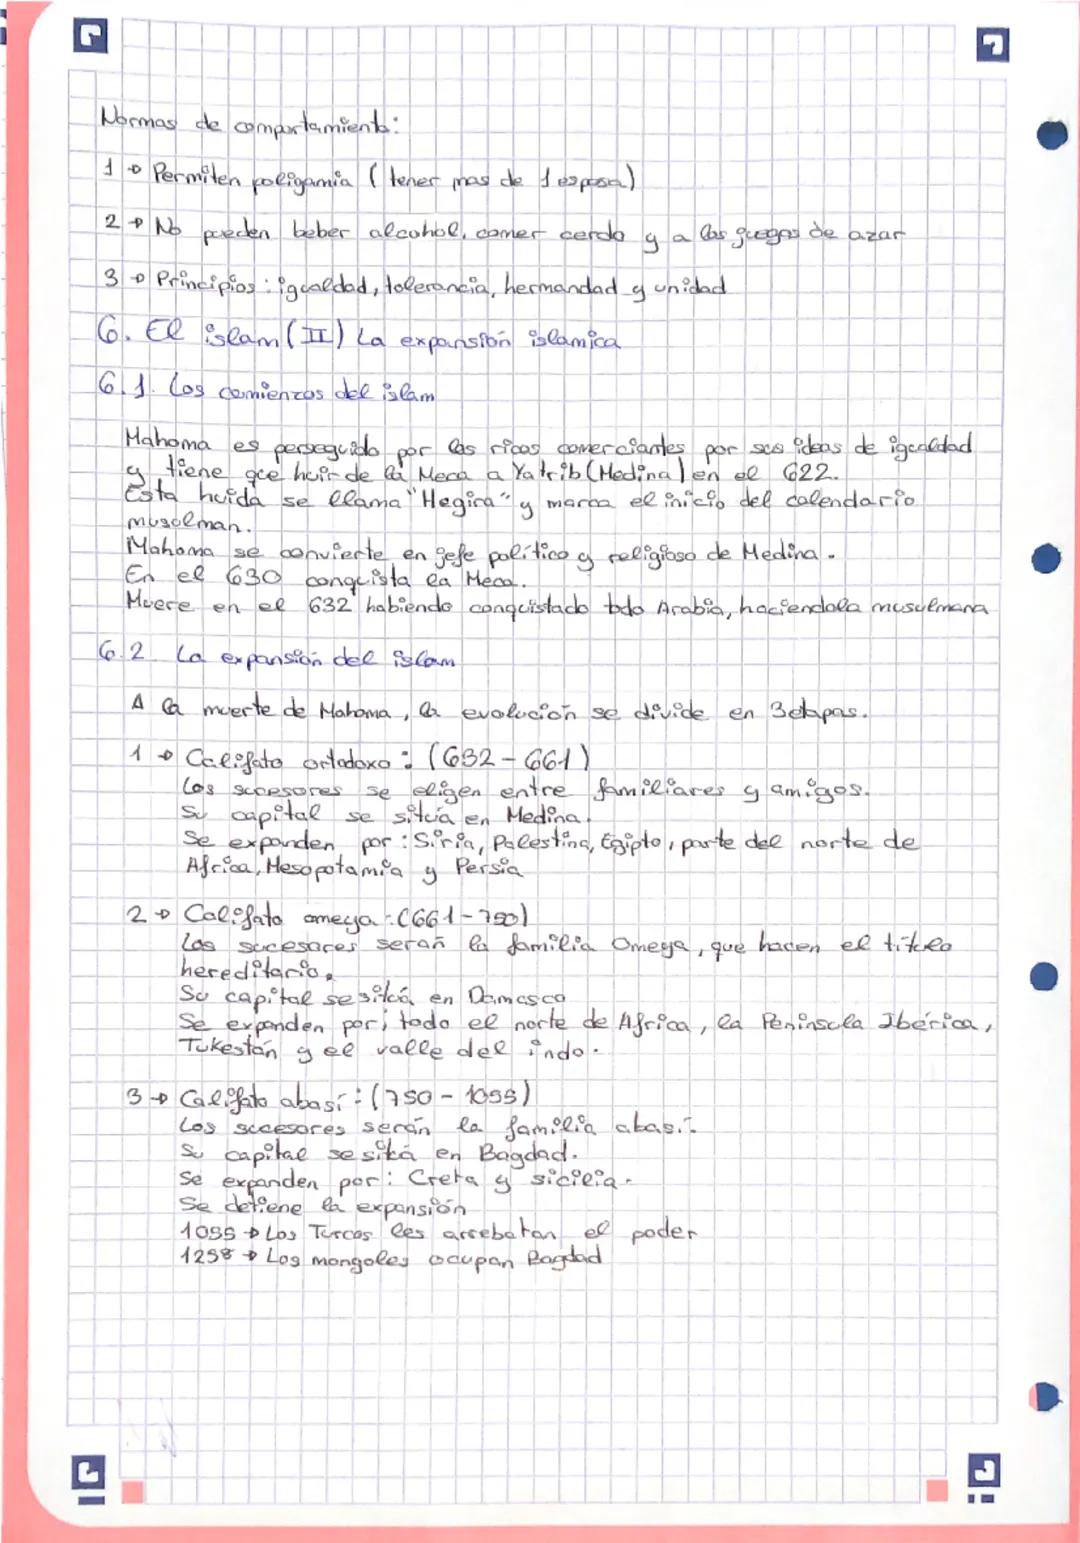 Normas de comportamiento:
1 → Permiten poligamia (tener mas de 1 esposa)
2 → No pueden beber alcohol, comer cerdo y a los juegos de azar
3 → Principios: igualdad, tolerancia, hermandad y unidad
6. El islam (II) La expansión islamica
6.1. Los comienzos del islam
Mahoma es perseguido por los ricos comerciantes por sus ideas de igualdad
y tiene que huir de la Meca a Yatrib (Medina) en el 622.
Esta huida se llama "Hegira" y marca el inicio del calendario
musulman.
Mahoma se convierte en jefe político y religioso de Medina.
En el 630 conquista la Meca.
Muere en el 632 habiendo conquistado todo Arabia, haciendola musulmana
6.2 La expansión del islam
A la muerte de Mahoma, la evolución se divide en 3 etapas.
1 → Califato ortodoxo: (632-661)
Los sucesores se eligen entre familiares y amigos.
Su capital se sitúa en Medina.
Se expanden por: Siria, Palestina, Egipto, parte del norte de
Africa, Mesopotamia y Persia
2 → Califato omeya: (661-750)
Los sucesores serán la familia Omeya, que hacen el título
hereditario.
Su capital se sitúa en Damasco
Se expanden por; todo el norte de Africa, la Península Ibérica,
Tukestán y el valle del indo.
3 → Califato abasí: (750-1055)
Los sucesores serán la familia abasí.
Su capital se sitúa en Bagdad.
Se expanden por: Creta y sicilia.
Se detiene la expansión
1055 → Los Turcos les arrebatan el poder
1258 → Los mongoles ocupan Bagdad